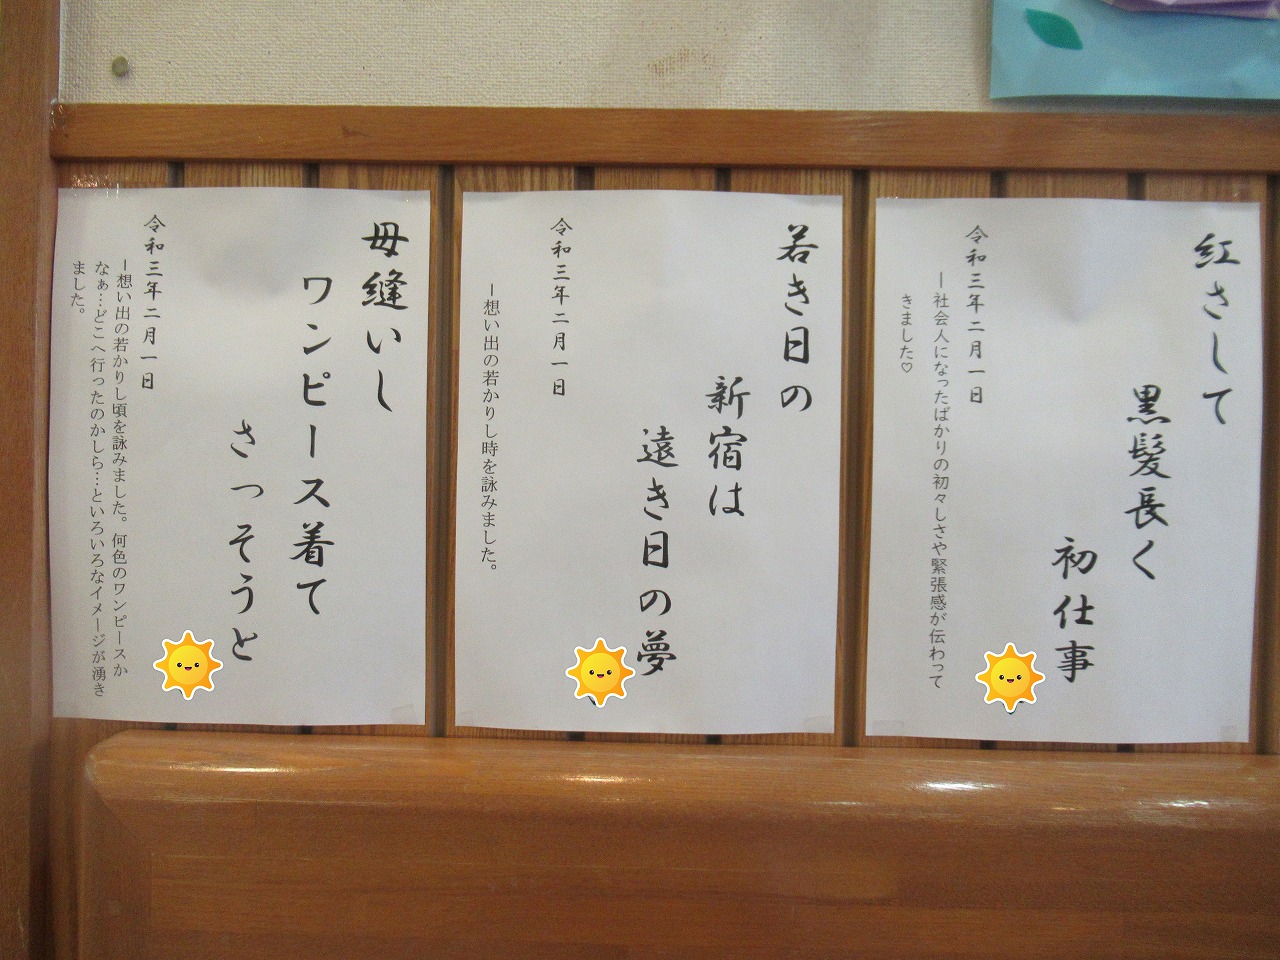 紅さして
黒髪長く
初仕事
令和三年二月一日
ー社会人になったばかりの初々しさや緊張感が伝わって
きました♡
若き日の
新宿は
遠き日の夢
令和三年二月一日
ー想い出の若かりし時を詠みました。
母縫いし
ワンピース着て
さっそうと
令和三年二月一日
ー想い出の若かりし頃を詠みました。何色のワンピースか
なぁ…どこへ行ったのかしら…といろいろなイメージが湧き
ました。